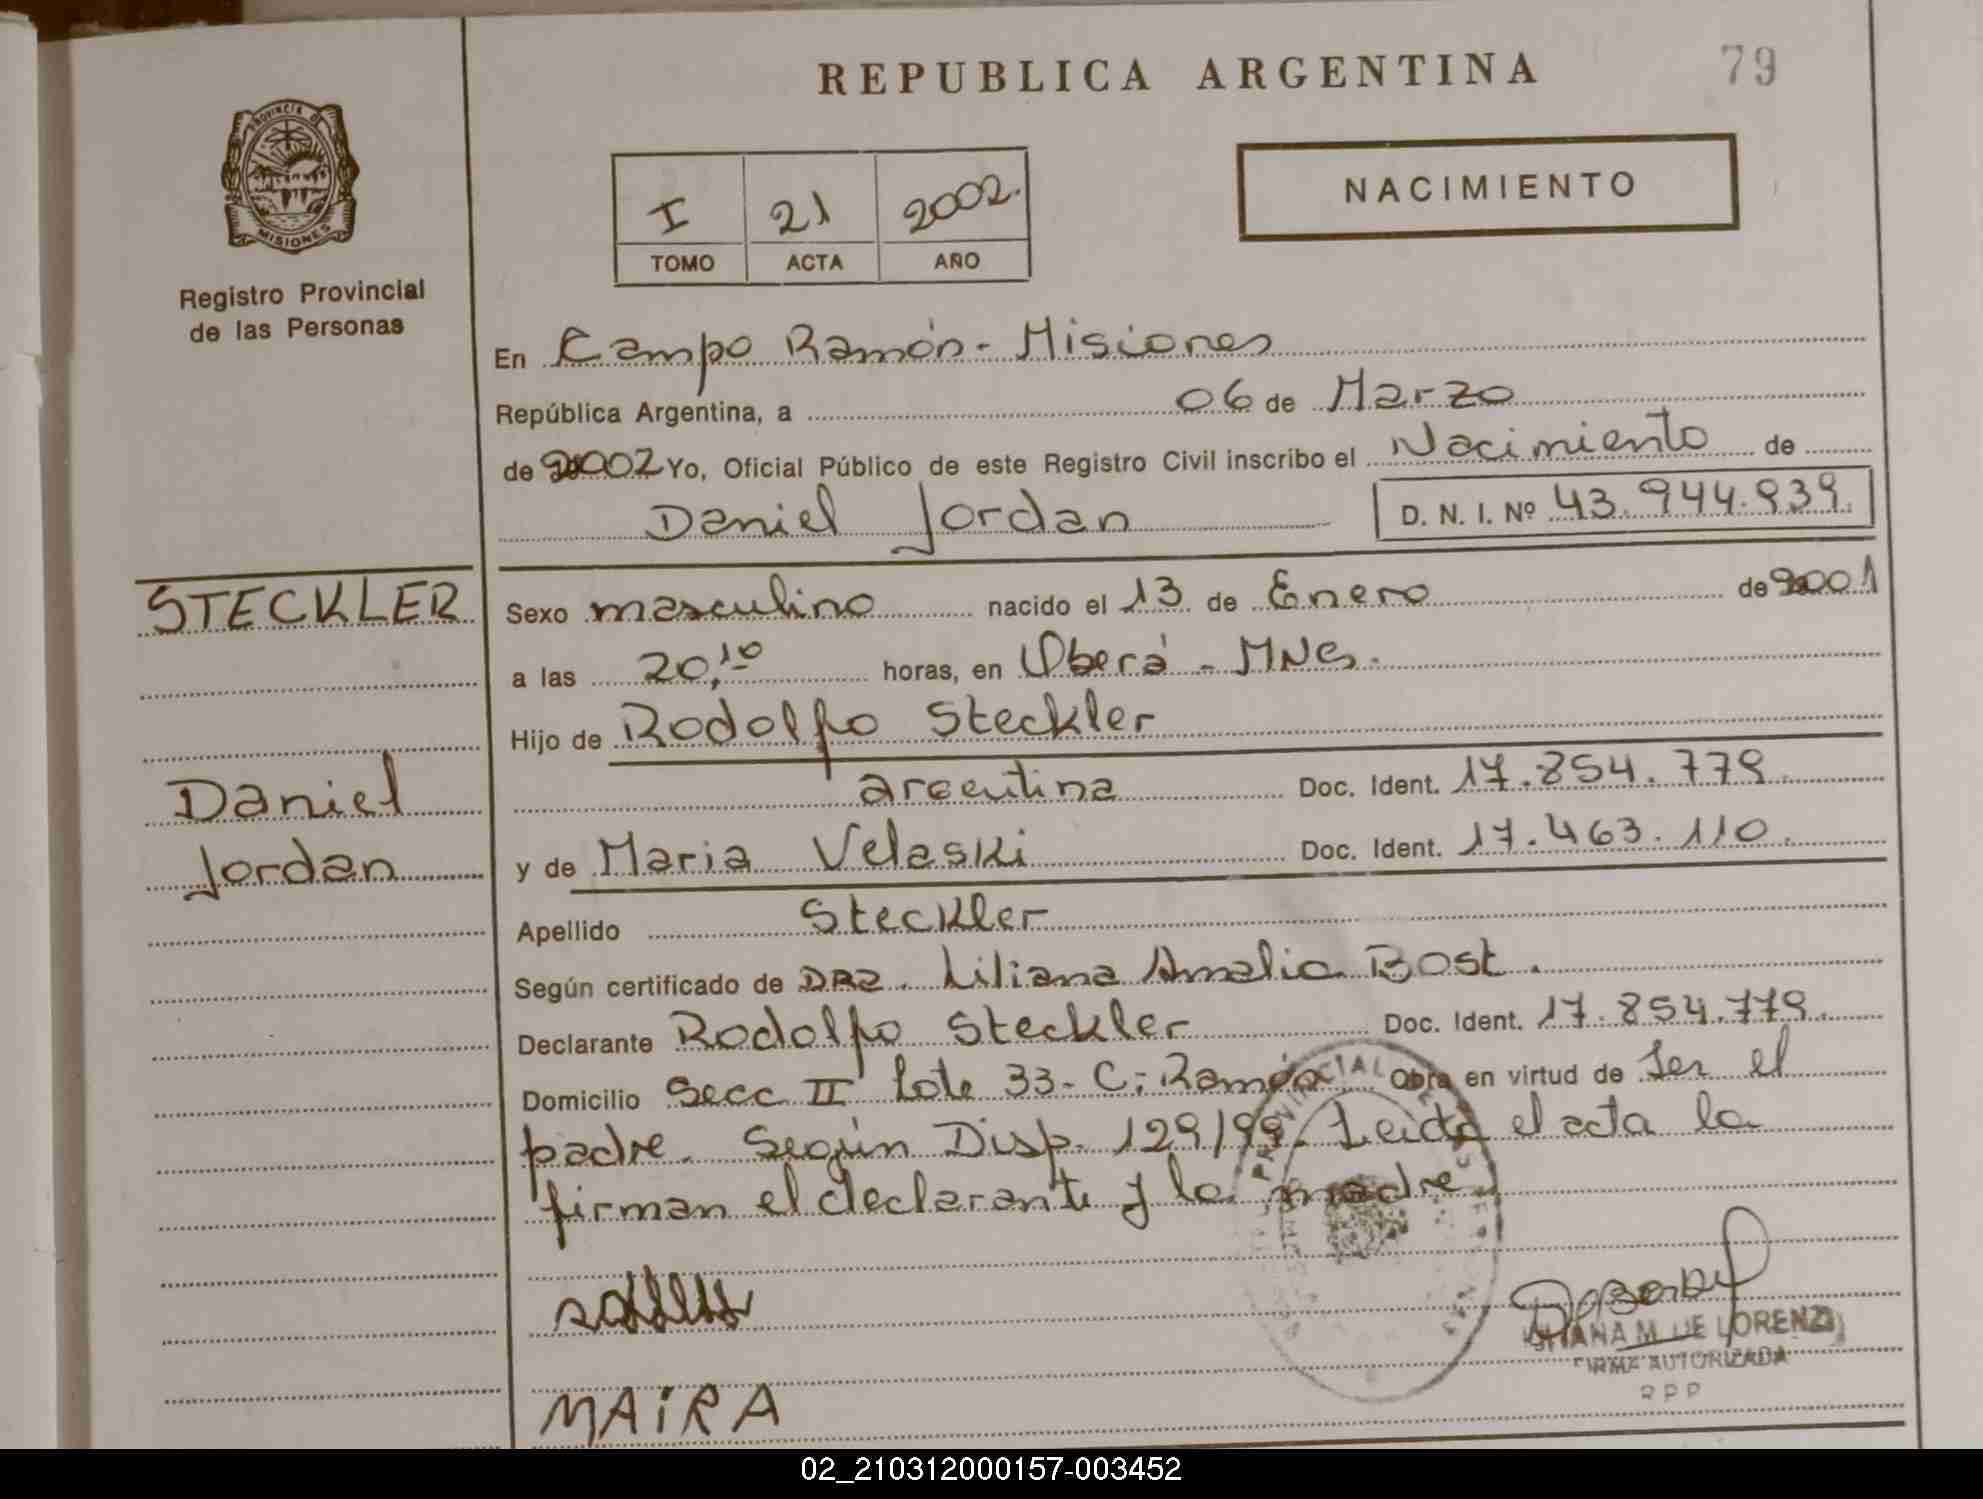 REPUBLICA ARGENTINA
79
PROVINCIA D
MISIONES
Registro Provincial
de las Personas
I 21 2002.
TOMO ACTA AÑO
NACIMIENTO
En Campo Ramón - Misiones
República Argentina, a 06 de Marzo
de 2002 Yo, Oficial Público de este Registro Civil inscribo el Nacimiento de
Daniel Jordan D. N. I. Nº 43.944.939.
STECKLER
Daniel
Jordan
Sexo masculino nacido el 13 de Enero de 2001
a las 20,10 horas, en Oberá - MNES.
Hijo de Rodolfo Steckler
argentina Doc. Ident. 17.854.779.
y de Maria Velaski Doc. Ident. 17.463.110.
Apellido Steckler
Según certificado de DRa. Liliana Amalia Bost.
Declarante Rodolfo Steckler Doc. Ident. 17.854.779.
Domicilio Secc II Lote 33 - C. Ramón Obra en virtud de Ser el
padre. Según Disp. 129/99. Leida el acta la
firman el declarante y la madre
MAiRA
M. DE LORENZI
FIRMA AUTORIZADA
RPP
02_210312000157-003452